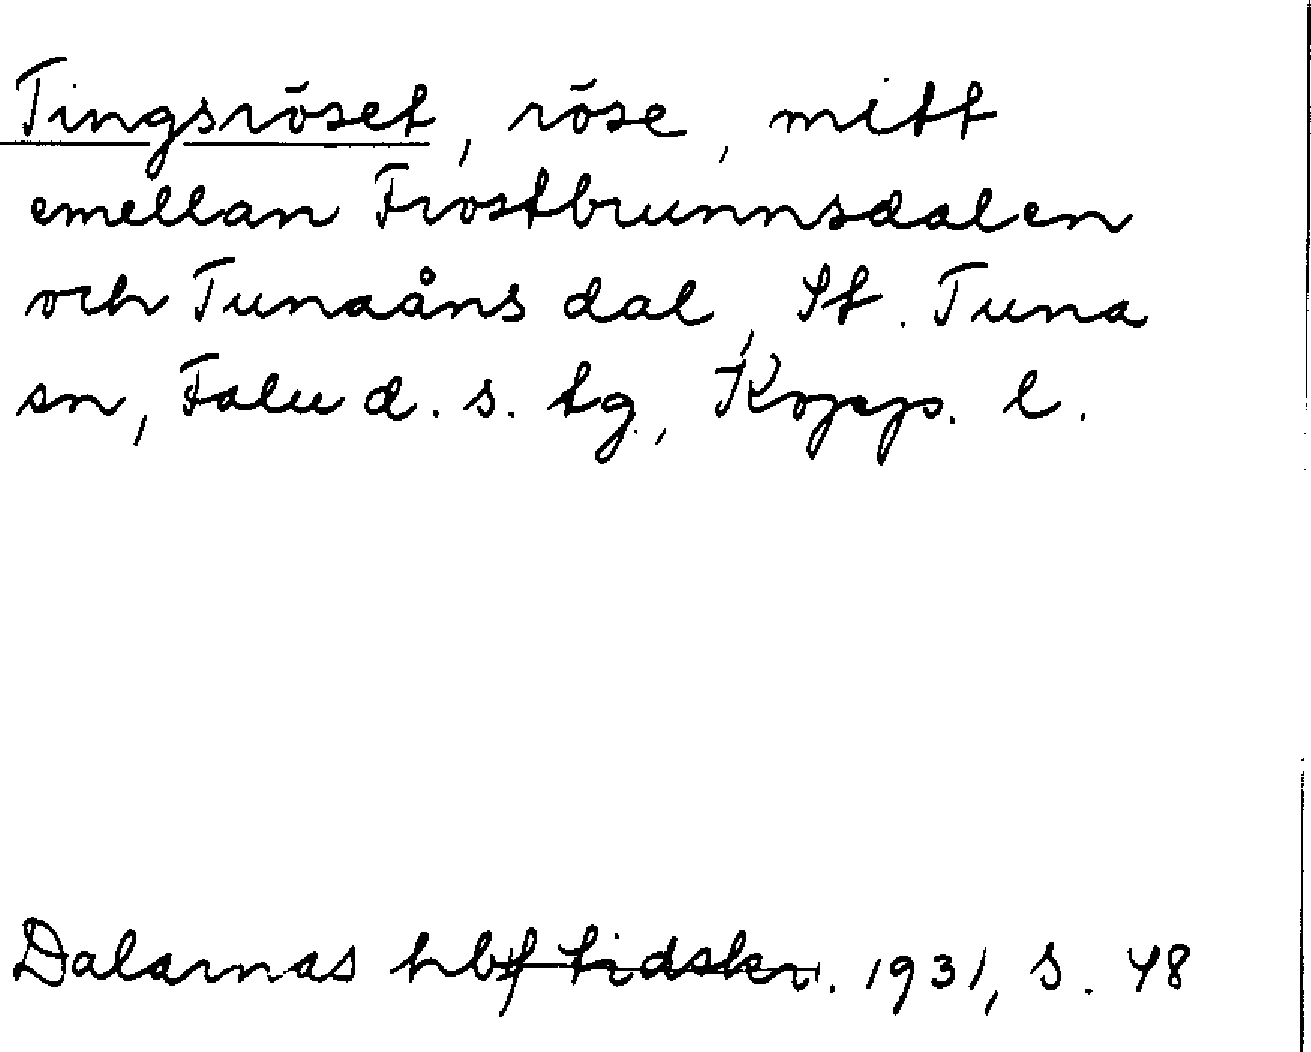 Tingsröset, röse, mitt
emellan Frostbrunnsdalen
och Tunaåns dal, St. Tuna
sn, Falu d. s. tg, Kopp. l.
Dalarnas hbf tidskr. 1931, s. 48